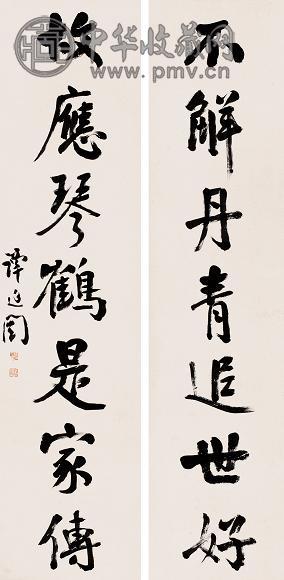 中华收藏网
www.pmv.cn
不解丹青追世好
故應琴鶴是家傳
譚延闓